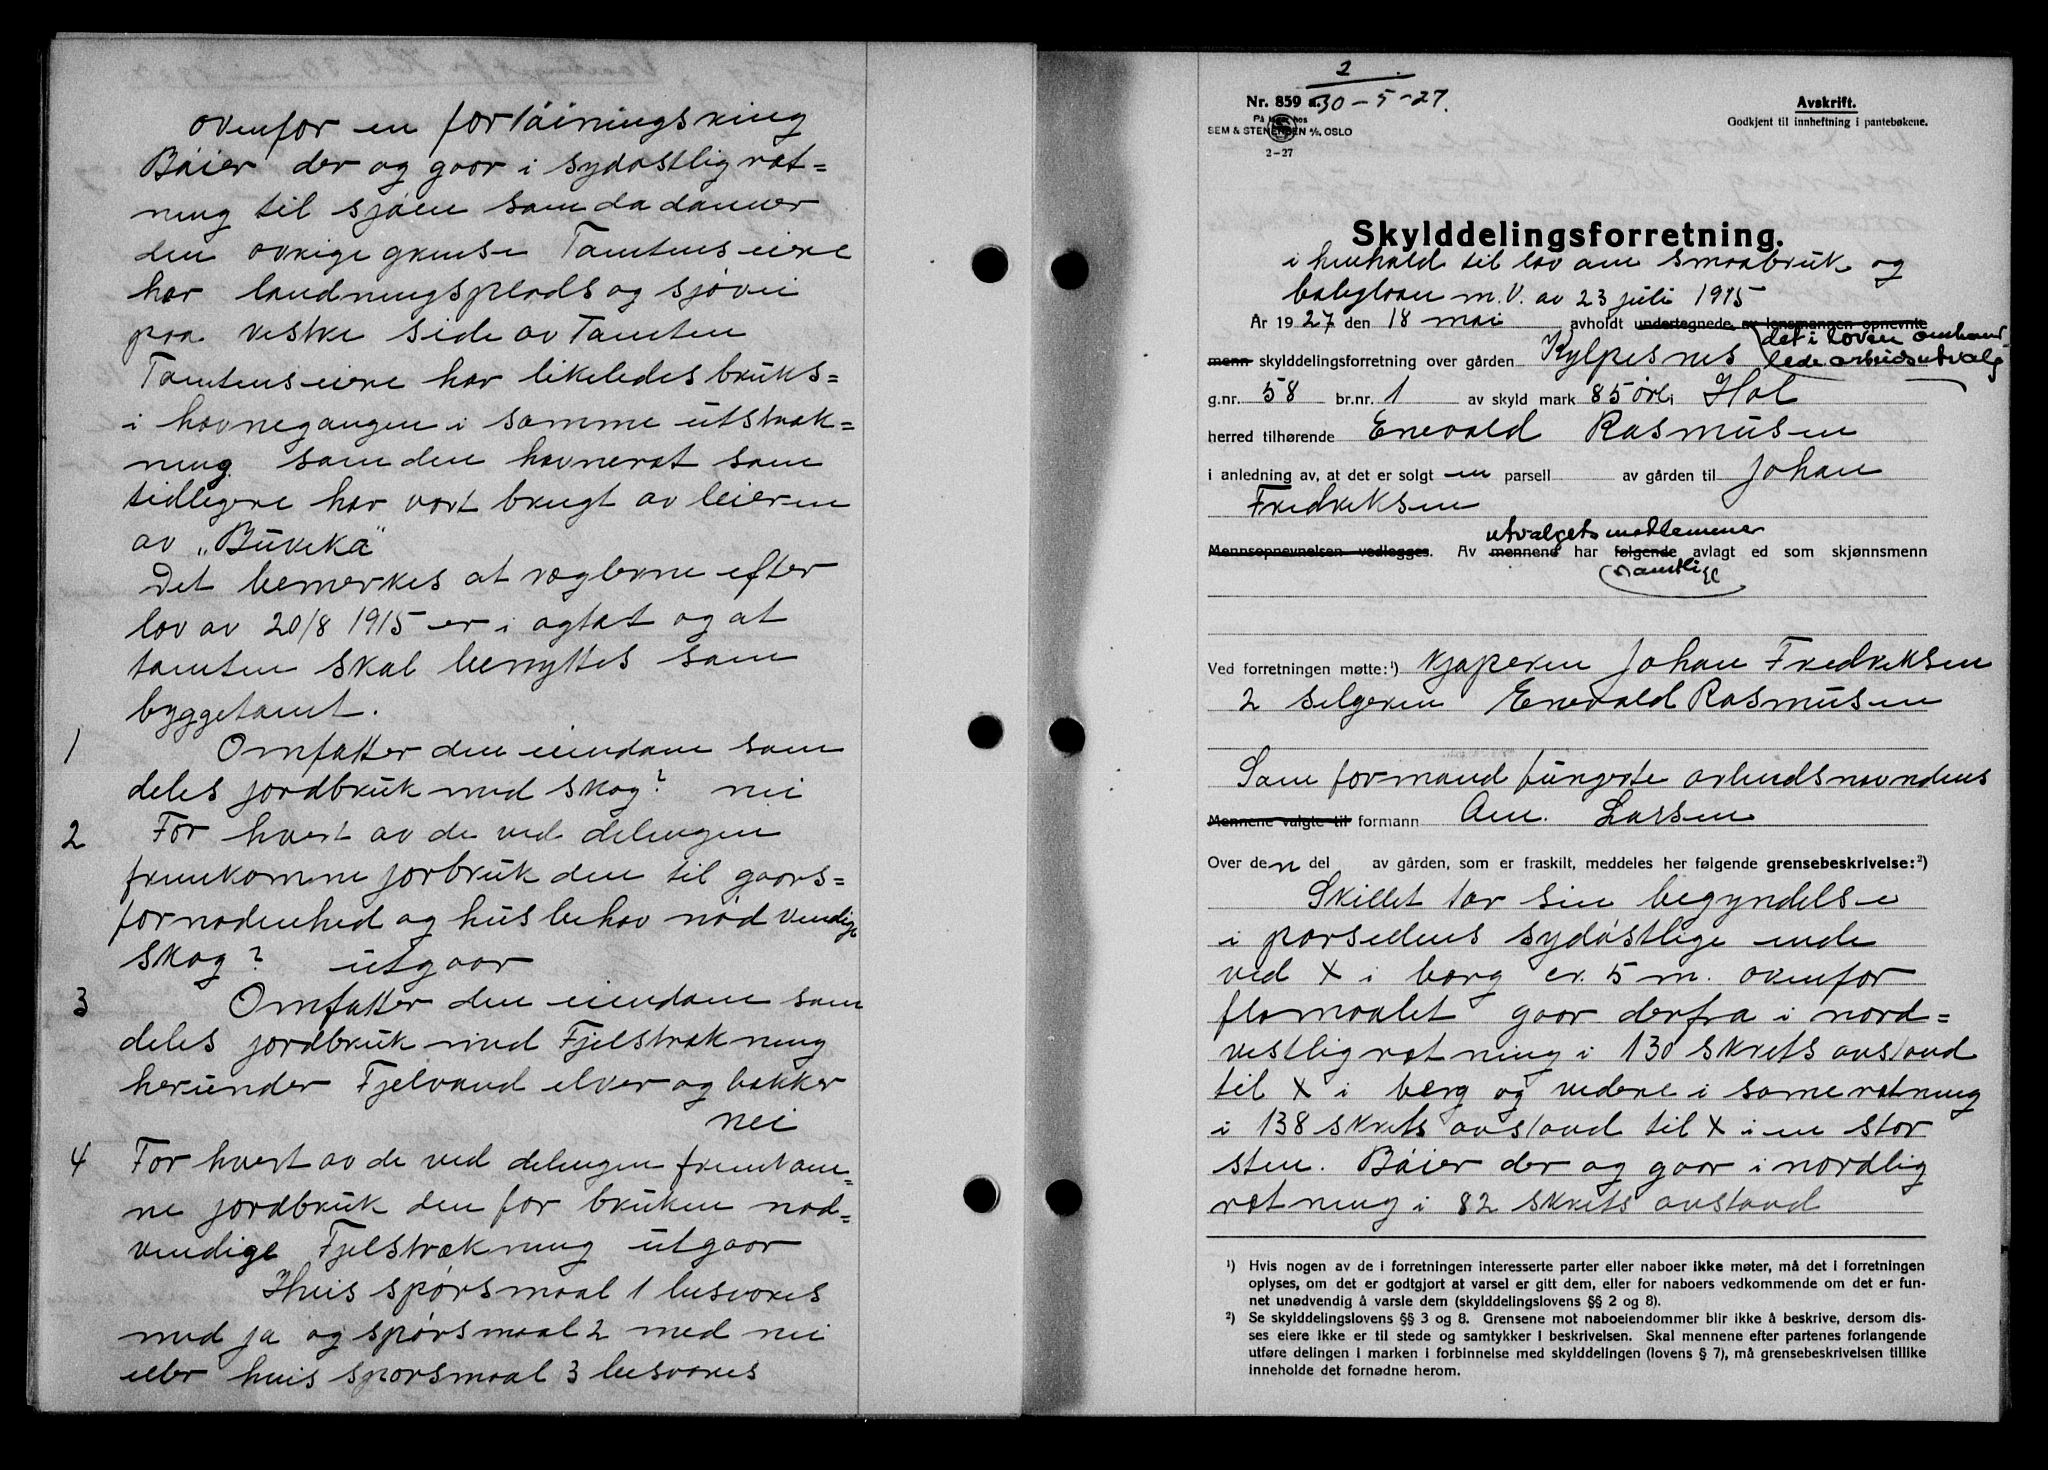 ovenfor en fortøiningsring
Bøier der og gaar i sydøstlig ret=
ning til sjøen som da danner
den øvrige grense Tomtens eiere
har landningsplads og sjøvei
paa vestre side av Tomten
Tomtens eiere har likeledes bruks=
i havnegangen i samme utstræk=
ning som den havneret som
tidligere har vært brugt av leieren
av "Buvika"
Det bemerkes at reglerne efter
lov av 20/8 1915 er iagtat og at
tomten skal benyttes som
byggetomt.
1 Omfatter den eiendom som
deles jordbruk med skog? nei
2 For hvert av de ved delingen
fremkomne jorbruk den til gaars=
fornødenhed og husbehov nødvendige
skog? utgaar
3 Omfatter den eiendom som
deles jordbruk med Fjelstrækning
herunder Fjelvand elver og bækker
nei
4 For hvert av de ved delingen fremkom=
ne jordbruk den for bruken nød=
vendige Fjelstrækning utgaar
Hvis spørsmaal 1 besvares
med ja og spørsmaal 2 med nei
eller hvis spørsmaal 3 besvares
2
Nr. 859 a. 30-5-27.
På lager hos
SEM & STENERSEN A/S, OSLO
2-27
Avskrift.
Godkjent til innheftning i pantebøkene.
Skylddelingsforretning.
i henhold til lov om smaabruk og
boliglaan m.v. av 23 juli 1915
År 1927 den 18 mai avholdt undertegnede, av lensmannen opnevnte
det i loven omhand-
menn skylddelingsforretning over gården Kylpesnes lede arbeidsutvalg
g.nr. 58 br.nr. 1 av skyld mark 85 øre i Hol
herred tilhørende Enevald Rasmusen
i anledning av, at det er solgt en parsell av gården til Johan
Fredriksen
utvalgets medlemmer
Mennsopnevnelsen vedlegges. Av mennene har følgende avlagt ed som skjønnsmenn
samtlige
Ved forretningen møtte:¹) kjøperen Johan Fredriksen
2 selgeren Enevald Rasmusen
Som formand fungerte arbeidsnevndens
Mennene valgte til formann Am. Larsen
Over den del av gården, som er fraskilt, meddeles her følgende grensebeskrivelse:²)
Skillet tar sin begyndelse
i parsellens sydøstlige ende
ved X i berg cr. 5 m. ovenfor
flomaalet gaar derfra i nord=
vestlig retning i 130 skrets avstand
til X i berg og videre i same retning
i 138 skrets avstand til X i en stor
sten. Bøier der og gaar i nordlig
retning i 82 skrets avstand
¹) Hvis nogen av de i forretningen interesserte parter eller naboer ikke møter, må det i forretningen
oplyses, om det er godtgjort at varsel er gitt dem, eller for naboers vedkommende om det er fun-
net unødvendig å varsle dem (skylddelingslovens §§ 2 og 8).
²) Se skylddelingslovens §§ 3 og 8. Grensene mot naboeiendommer blir ikke å beskrive, dersom dis-
ses eiere ikke er til stede og samtykker i beskrivelsen. Skal mennene efter partenes forlangende
utføre delingen i marken i forbinnelse med skylddelingen (lovens § 7), må grensebeskrivelsen tillike
inneholde det fornødne herom.